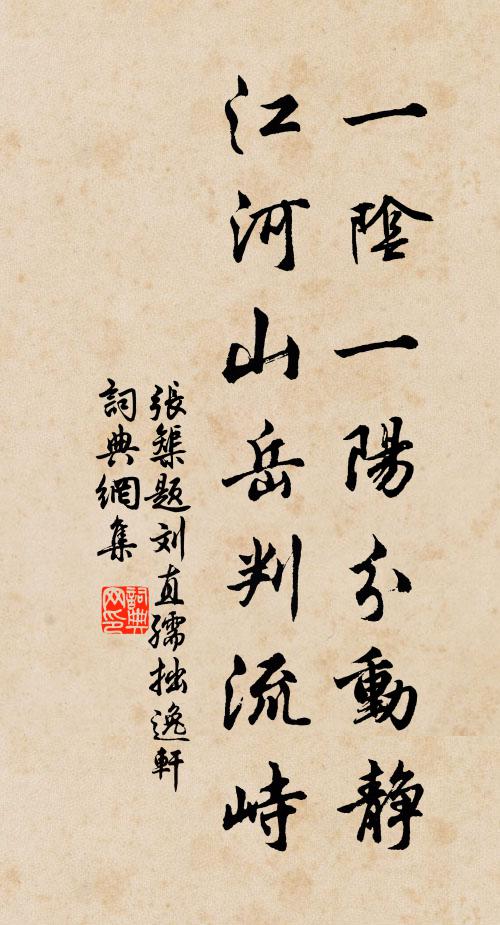 一陰一陽分動静
江河山岳判流峙
張榘题刘直孺拙逸軒
詞典網集
詞典网印